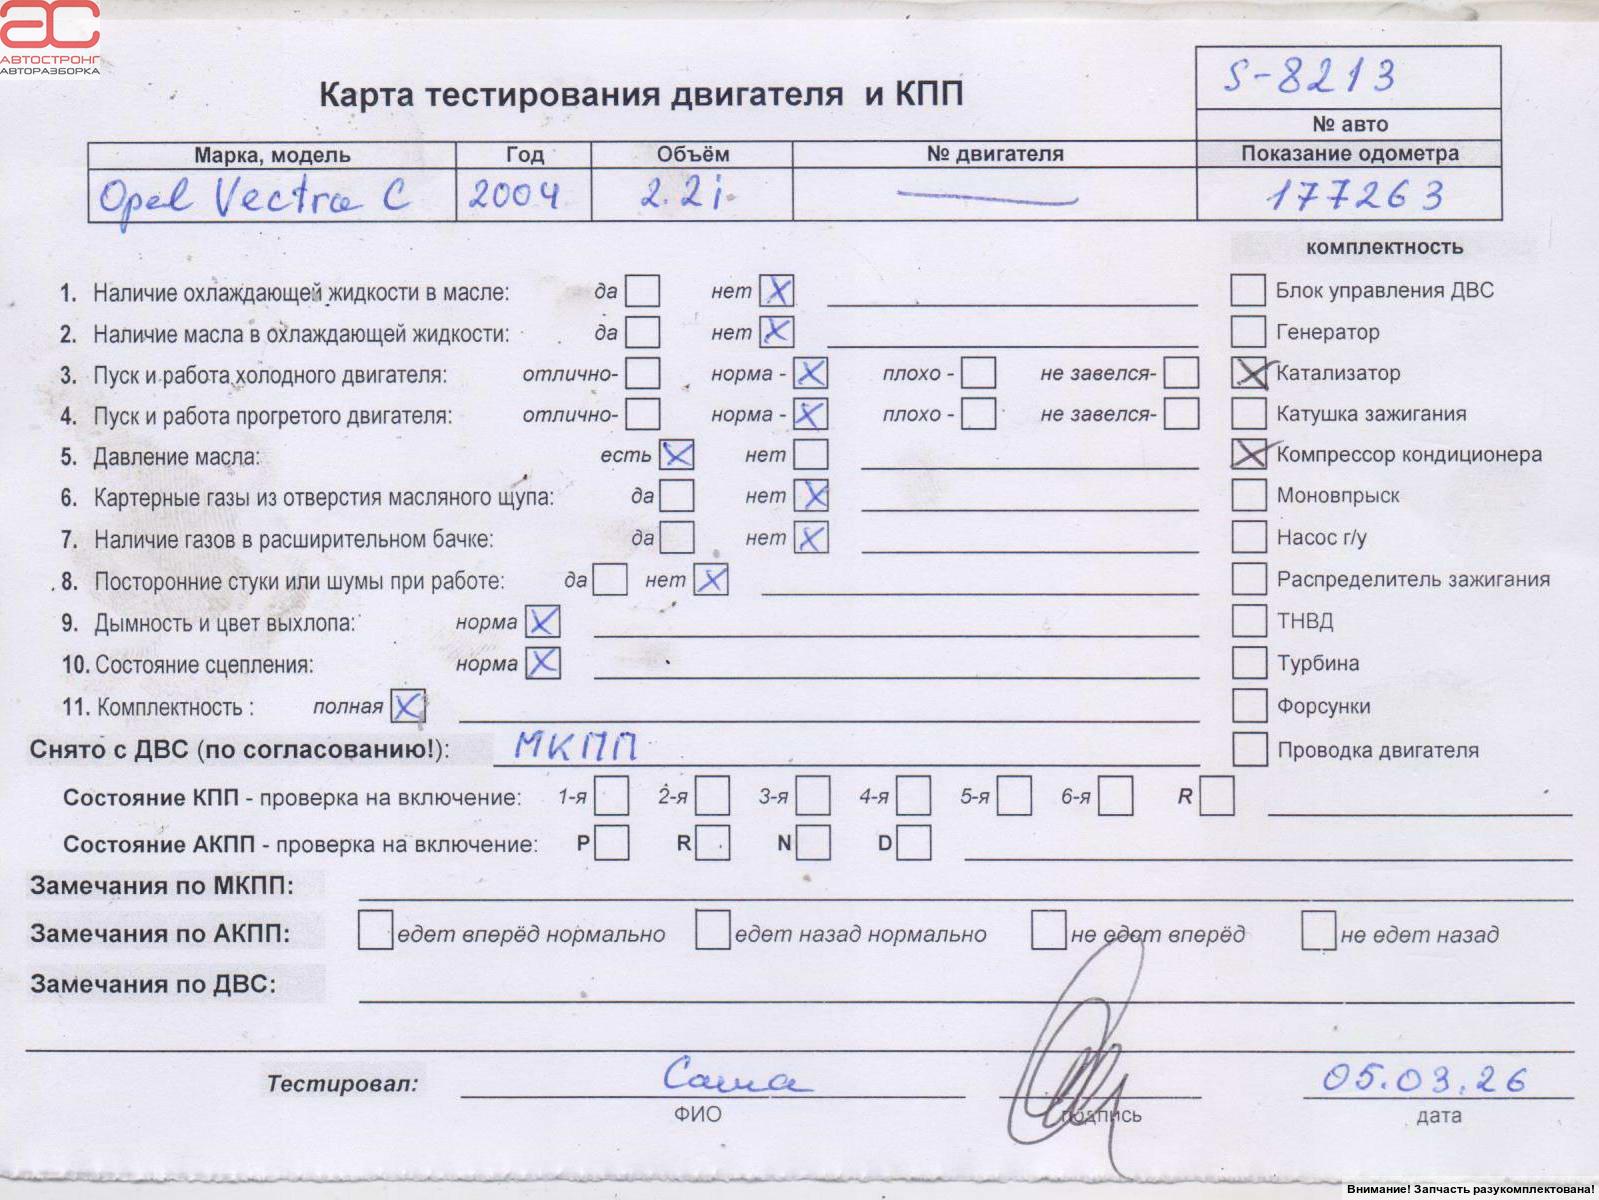 АС
АВТОСТРОНГ
АВТОРАЗБОРКА
S-8213
Карта тестирования двигателя и КПП
№ авто
Марка, модель Год Объём № двигателя Показание одометра
Opel Vectra C 2004 2.2i 177263
комплектность
1. Наличие охлаждающей жидкости в масле: да нет Блок управления ДВС
2. Наличие масла в охлаждающей жидкости: да нет Генератор
3. Пуск и работа холодного двигателя: отлично- норма - плохо - не завелся- Катализатор
4. Пуск и работа прогретого двигателя: отлично- норма - плохо - не завелся- Катушка зажигания
5. Давление масла: есть нет Компрессор кондиционера
6. Картерные газы из отверстия масляного щупа: да нет Моновпрыск
7. Наличие газов в расширительном бачке: да нет Насос г/у
8. Посторонние стуки или шумы при работе: да нет Распределитель зажигания
9. Дымность и цвет выхлопа: норма ТНВД
10. Состояние сцепления: норма Турбина
11. Комплектность : полная Форсунки
Снято с ДВС (по согласованию!): МКПП Проводка двигателя
Состояние КПП - проверка на включение: 1-я 2-я 3-я 4-я 5-я 6-я R
Состояние АКПП - проверка на включение: P R N D
Замечания по МКПП:
Замечания по АКПП: едет вперёд нормально едет назад нормально не едет вперёд не едет назад
Замечания по ДВС:
Тестировал: Саша 05.03.26
ФИО подпись дата
Внимание! Запчасть разукомплектована!